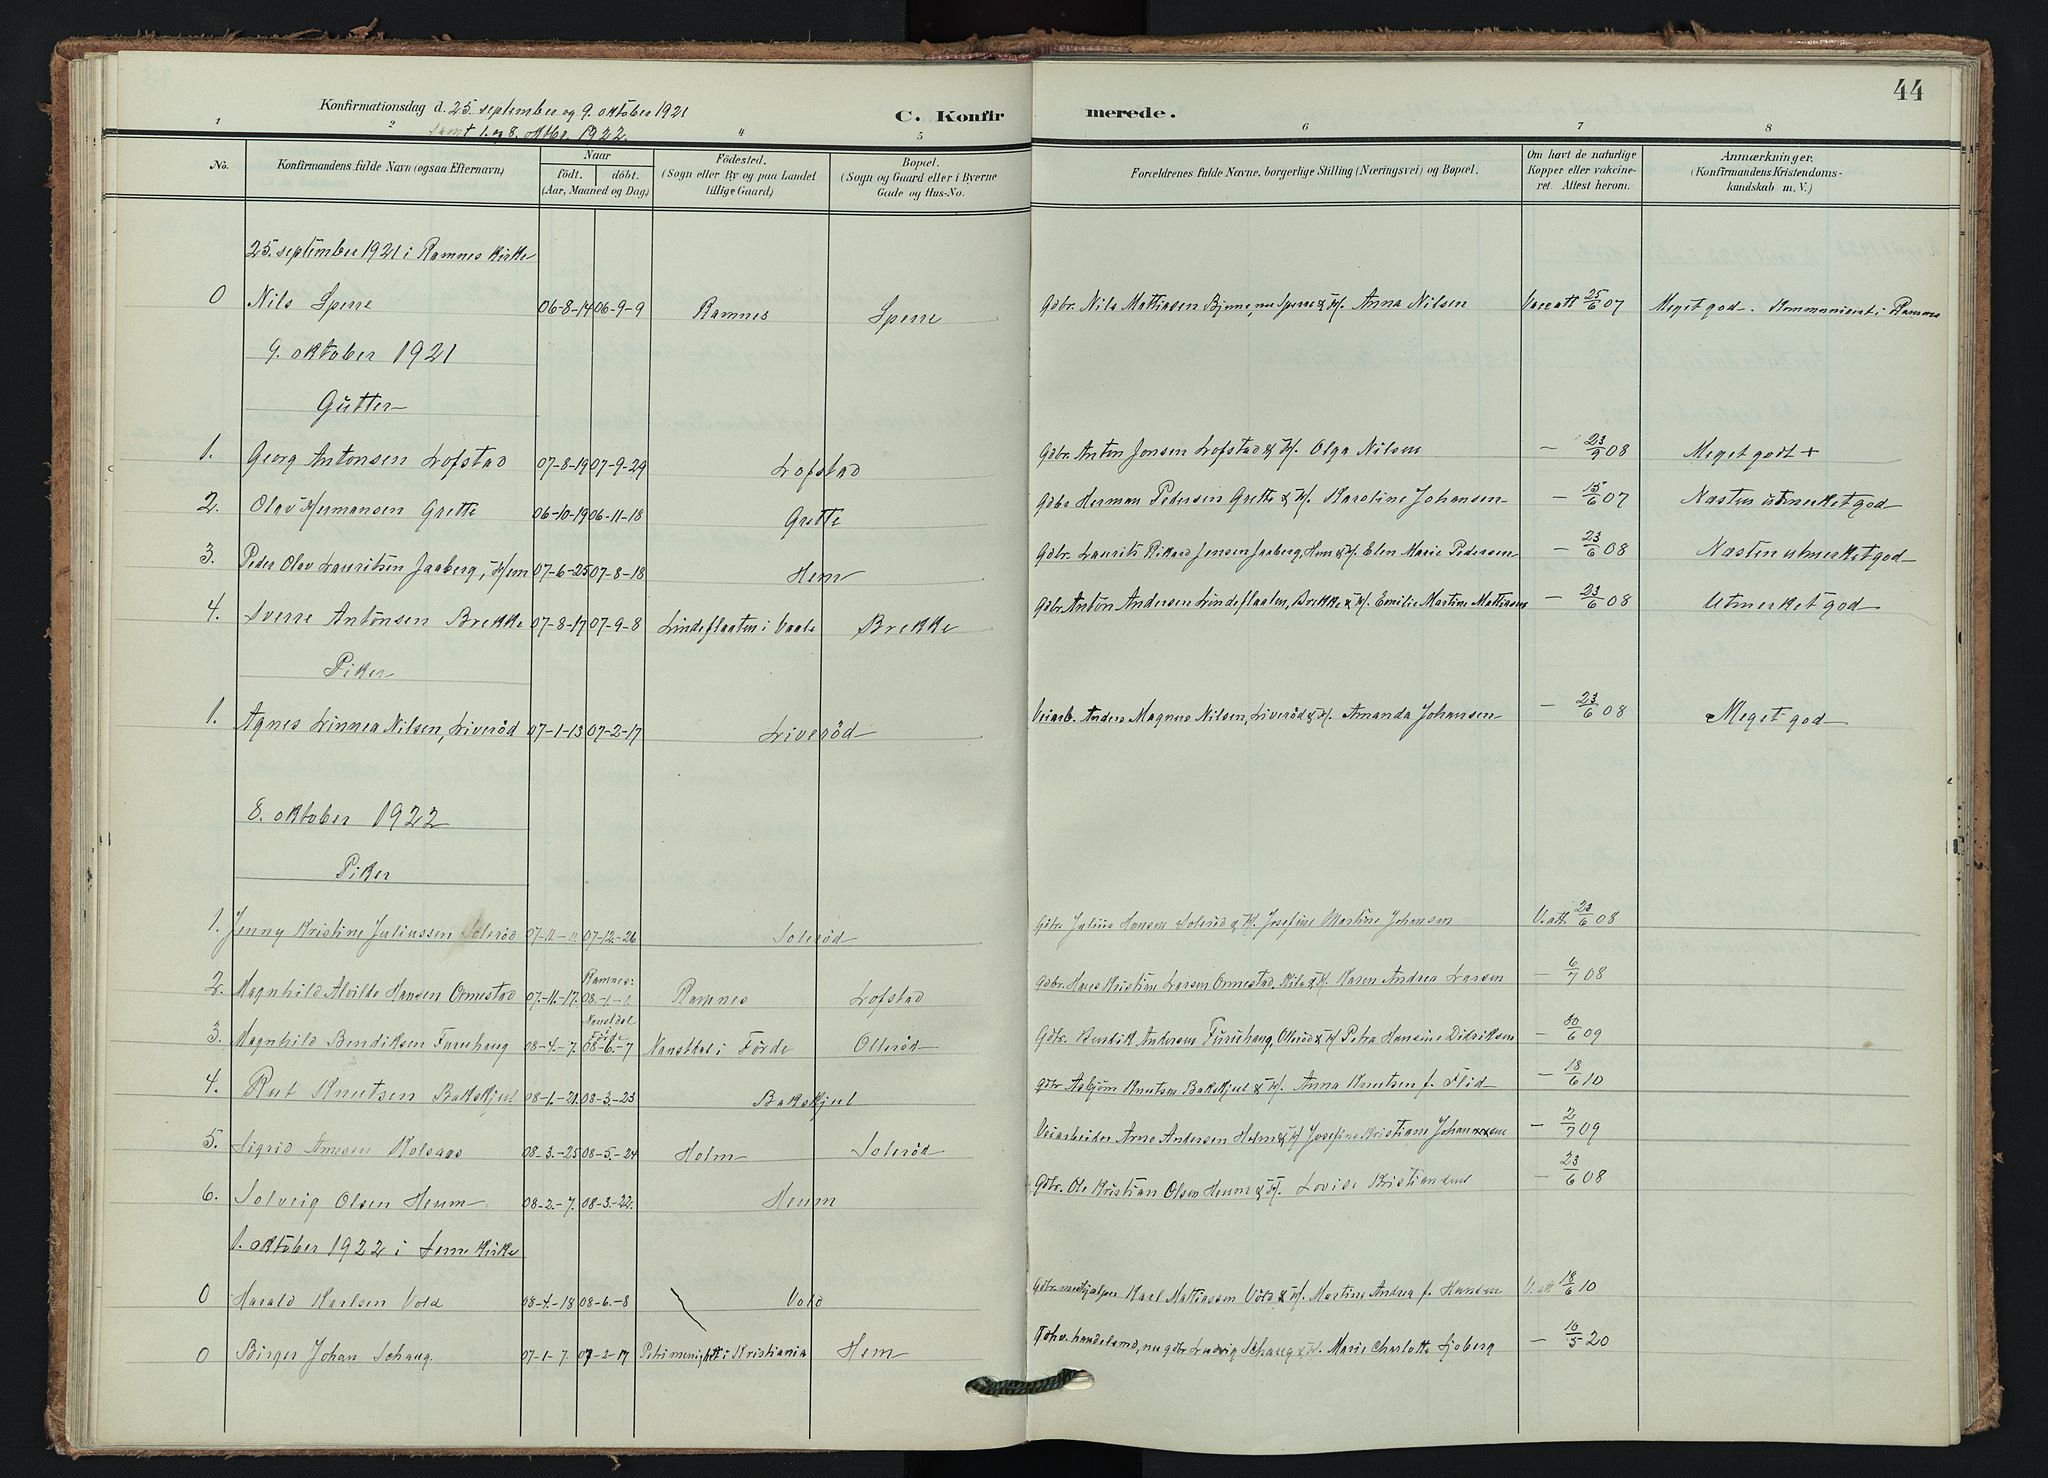 44
Konfirmationsdag d. 25. september og 9. oktober 1921
samt 1. og 8. oktbr. 1922.
C. Konfirmerede.
1 2 4 5 6 7 8
No. Konfirmandens fulde Navn (ogsaa Efternavn) Naar født. døbt. (Aar, Maaned og Dag) Fødested. (Sogn eller By og paa Landet tillige Gaard) Bopæl. (Sogn og Gaard eller i Byerne Gade og Hus-No. Forældrenes fulde Navne, borgerlige Stilling (Næringsvei) og Bopæl. Om havt de naturlige Kopper eller vakcineret. Attest herom. Anmærkninger. (Konfirmandens Kristendomskundskab m. V.)
25. september 1921 i Ramnes Kirke
0 Nils Sperre 06-8-14 06-9-9 Ramnes Sperre Gdbr. Nils Mathiasen Bjune, nu Sperre & H. Anna Nilsen Vacc att 25/6 07 Meget god. Kommunicert i Ramnes
9. oktober 1921
Gutter
1. Georg Antonsen Lofstad 07-8-19 07-9-29 Lofstad Gdbr. Anton Jonsen Lofstad & H. Olga Nilsen — 23/9 08 Meget godt +
2. Olav Hermansen Grette 06-10-19 06-11-18 Grette Gdbr Herman Pedersen Grette & H. Karoline Johansen — 15/6 07 Næsten utmerket god
3. Peder Olav Lauritsen Jaaberg, Hem 07-6-25 07-8-18 Hem Gdbr. Laurits Rikard Jensen Jaaberg, Hem & H. Elen Marie Pedersen — 23/6 08 Næsten utmerket god
4. Sverre Antonsen Brekke 07-8-17 07-9-8 Lindeflaaten i Vaale Brekke Gdbr Anton Andersen Lindeflaaten, Brekke & H. Emilie Martine Mathiasen — 23/6 08 Utmerket god
Piker
1. Agnes Linnea Nilsen, Liverød 07-1-13 07-2-17 Liverød Veiarb. Anders Magnus Nilsen, Liverød & H. Amanda Johansen — 23/6 08 Meget god
8. oktober 1922
Piker
1. Jenny Kristine Juliussen Solerød 07-11-11. 07-12-26 Solerød Gdbr. Julius Hansen Solerød & H. Josefine Martine Johansen V. att. 23/6 08
2. Magnhild Alvilde Hansen Ormestad 07-11-17. Ramnes: 08-1-1. Ramnes Lofstad Gdbr. Hans Kristian Larsen Ormestad, & H. Karen Andrea Larsen — 6/7 08
3. Magnhild Bendiksen Furuhaug 08-4-7. Naustdal Förde 08-6-7 Naustdal i Förde Ollerød Gdbr. Bendik Andersen Furuhaug, Ollerød & H. Petra Hansine Didriksen — 30/6 09
4. Rut Knutsen Bakskjul 08-1-21. 08-3-23 Bakskjul Gdbr Asbjørn Knutsen Bakskjul & H. Anna Knutsen f. Flid — 18/6 10
5. Sigrid Arnesen Kolsaas 08-3-25 08-5-24 Holm Solerød Veiarbeider Arne Andersen Holm & H. Josefine Kristiane Johannesen — 2/7 09
6. Solveig Olsen Heum 08-2-7. 08-3-22. Heum Gdbr. Ole Kristian Olsen Heum & H. Lovise Kristiansen — 23/6 08
1. oktober 1922 i Sem Kirke
0 Harald Karlsen Vold 08-4-18 08-6-8 Vold Gdbr. medhjelper Karl Mathiassen Vold & H. Martine Andrea f. Hansen V. att 18/6 10
0 Birger Johan Schaug. 07-1-7. 07-2-17 Petri menighet i Kristiania Hem handelsmd, nu gdbr Ludvig Schaug & H. Marie Charlotte Sjøberg — 10/5 20